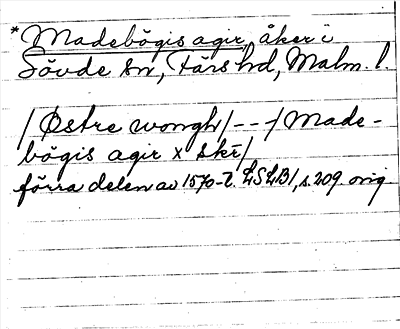 *Madebögis agir, åker i
Sövde sn, Färs hd, Malm. l.
/Østre wongh/ - - -/Made-
bögis agir x skr/
förra delen av 1570-t. LSLB1, s. 209. orig